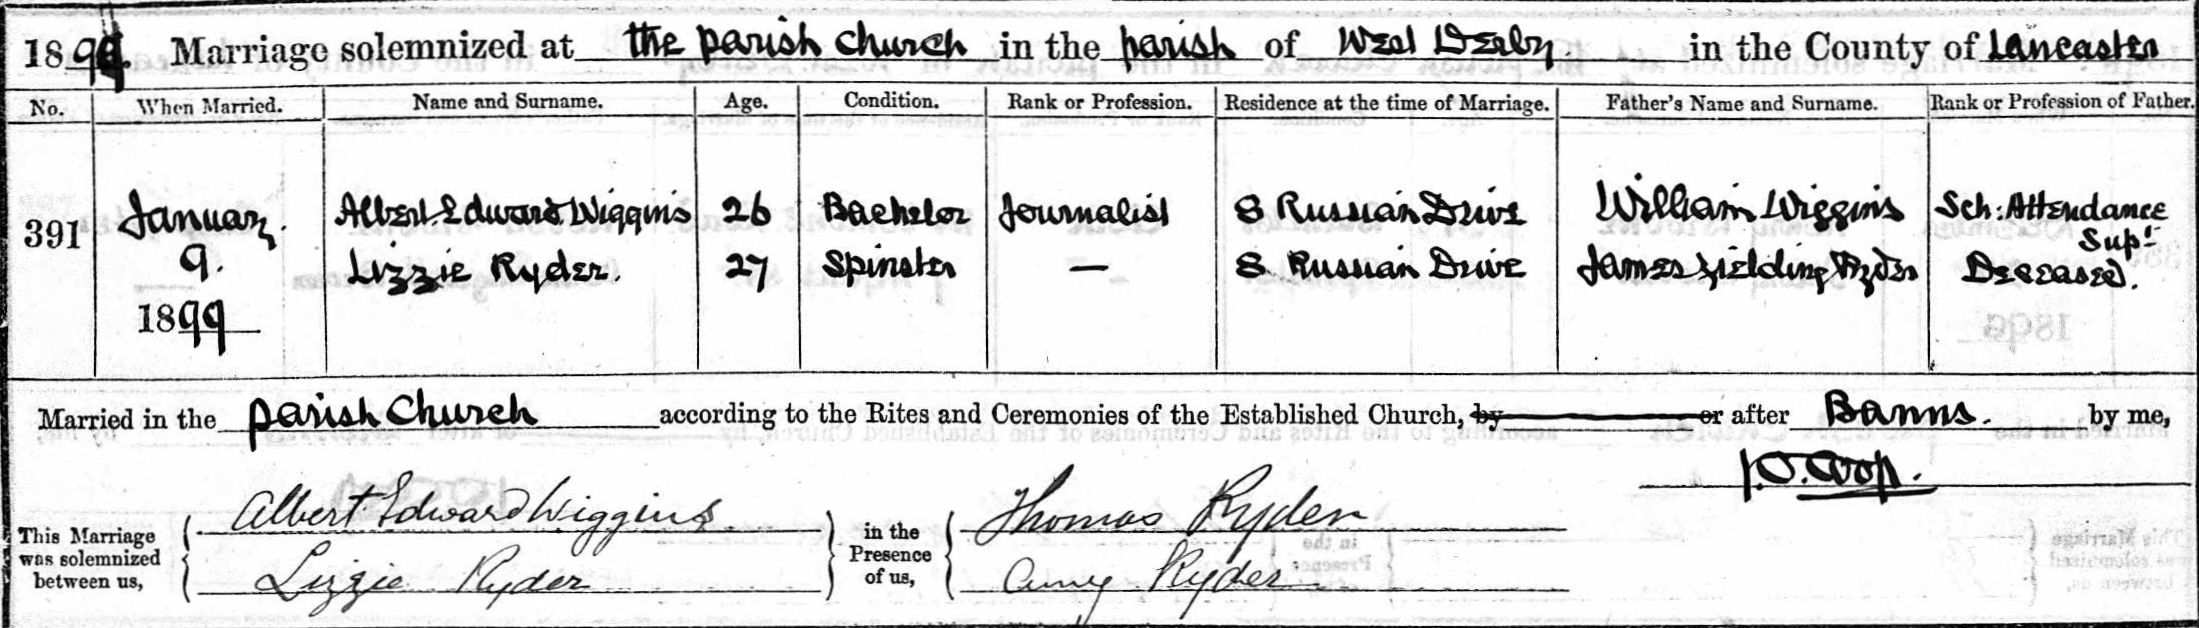 1899. Marriage solemnized at the parish church in the parish of West Derby in the County of Lancaster
No. When Married. Name and Surname. Age. Condition. Rank or Profession. Residence at the time of Marriage. Father's Name and Surname. Rank or Profession of Father.
391 January 9. 1899
Albert Edward Wiggins 26 Bachelor Journalist 8 Russian Drive William Wiggins Sch: Attendance Supt
Lizzie Ryder. 27 Spinster — 8 Russian Drive James Fielding Ryder Deceased.
Married in the parish church according to the Rites and Ceremonies of the Established Church, by or after Banns. by me,
J.O. Coop.
This Marriage was solemnized between us,
Albert Edward Wiggins
Lizzie Ryder
in the Presence of us,
Thomas Ryder
Amy Ryder